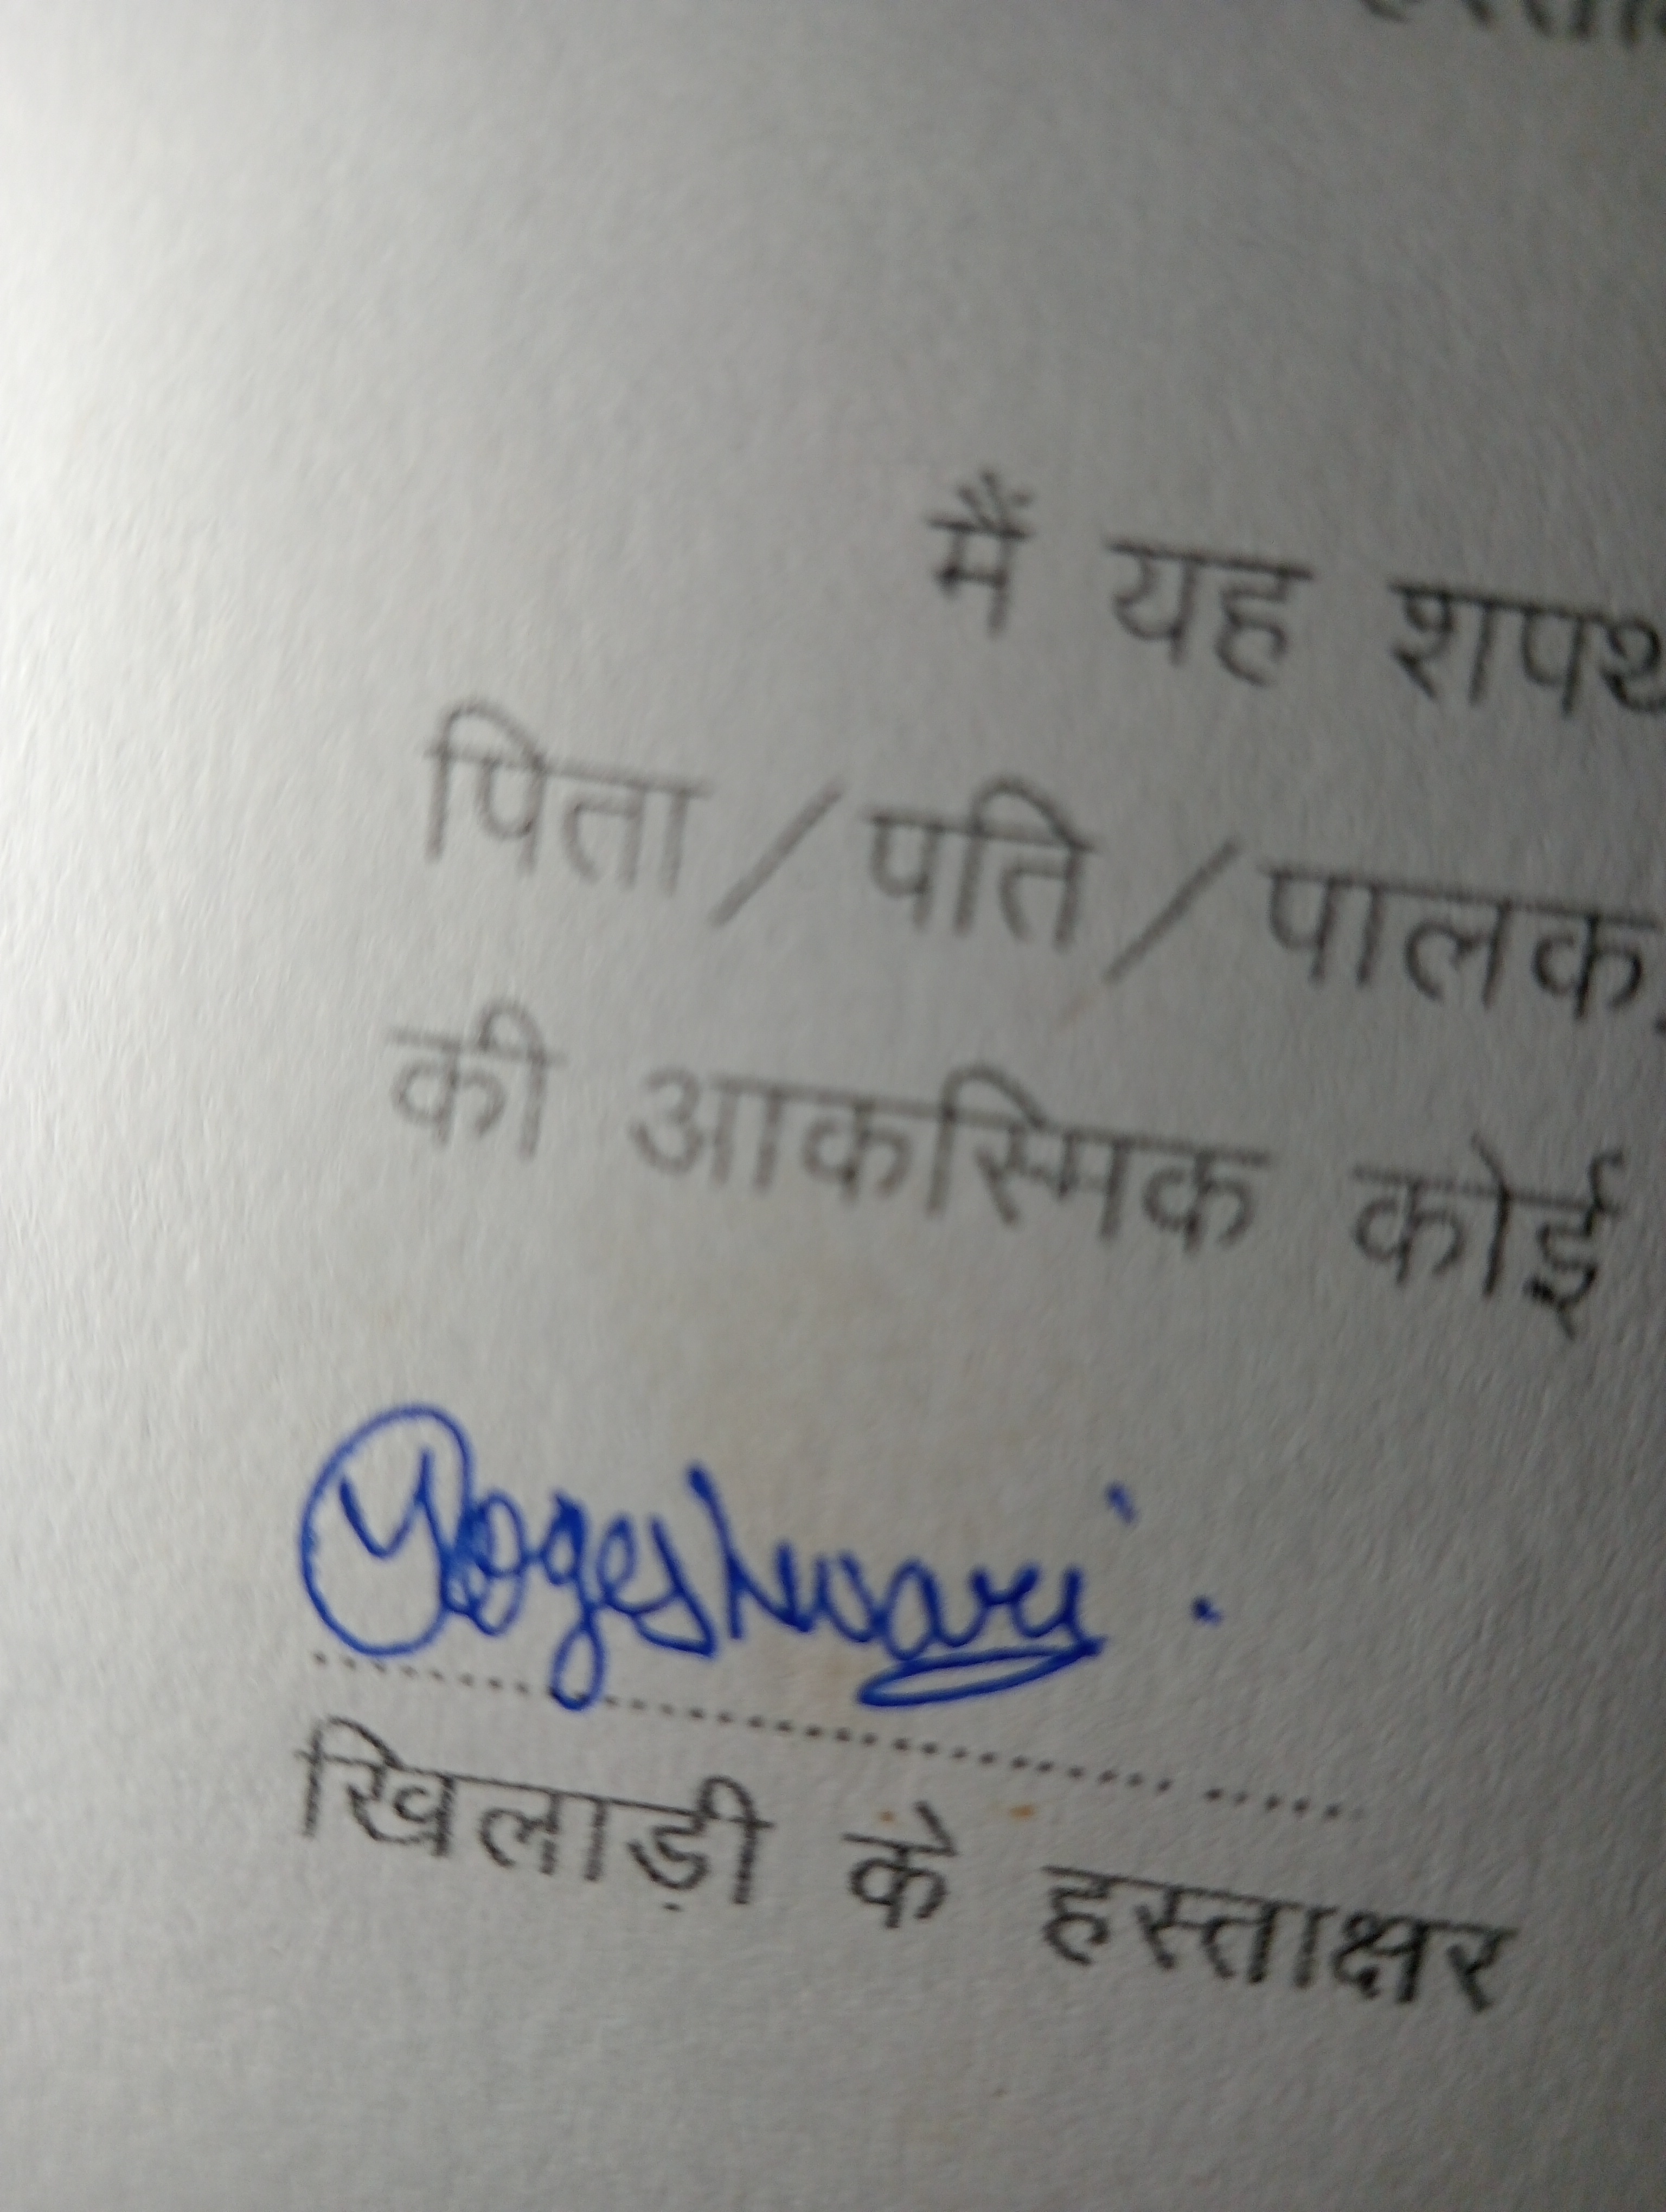 मैं यह शपथ
पिता / पति / पालक
की आकस्मिक कोई
Yogeshwari
खिलाड़ी के हस्ताक्षर